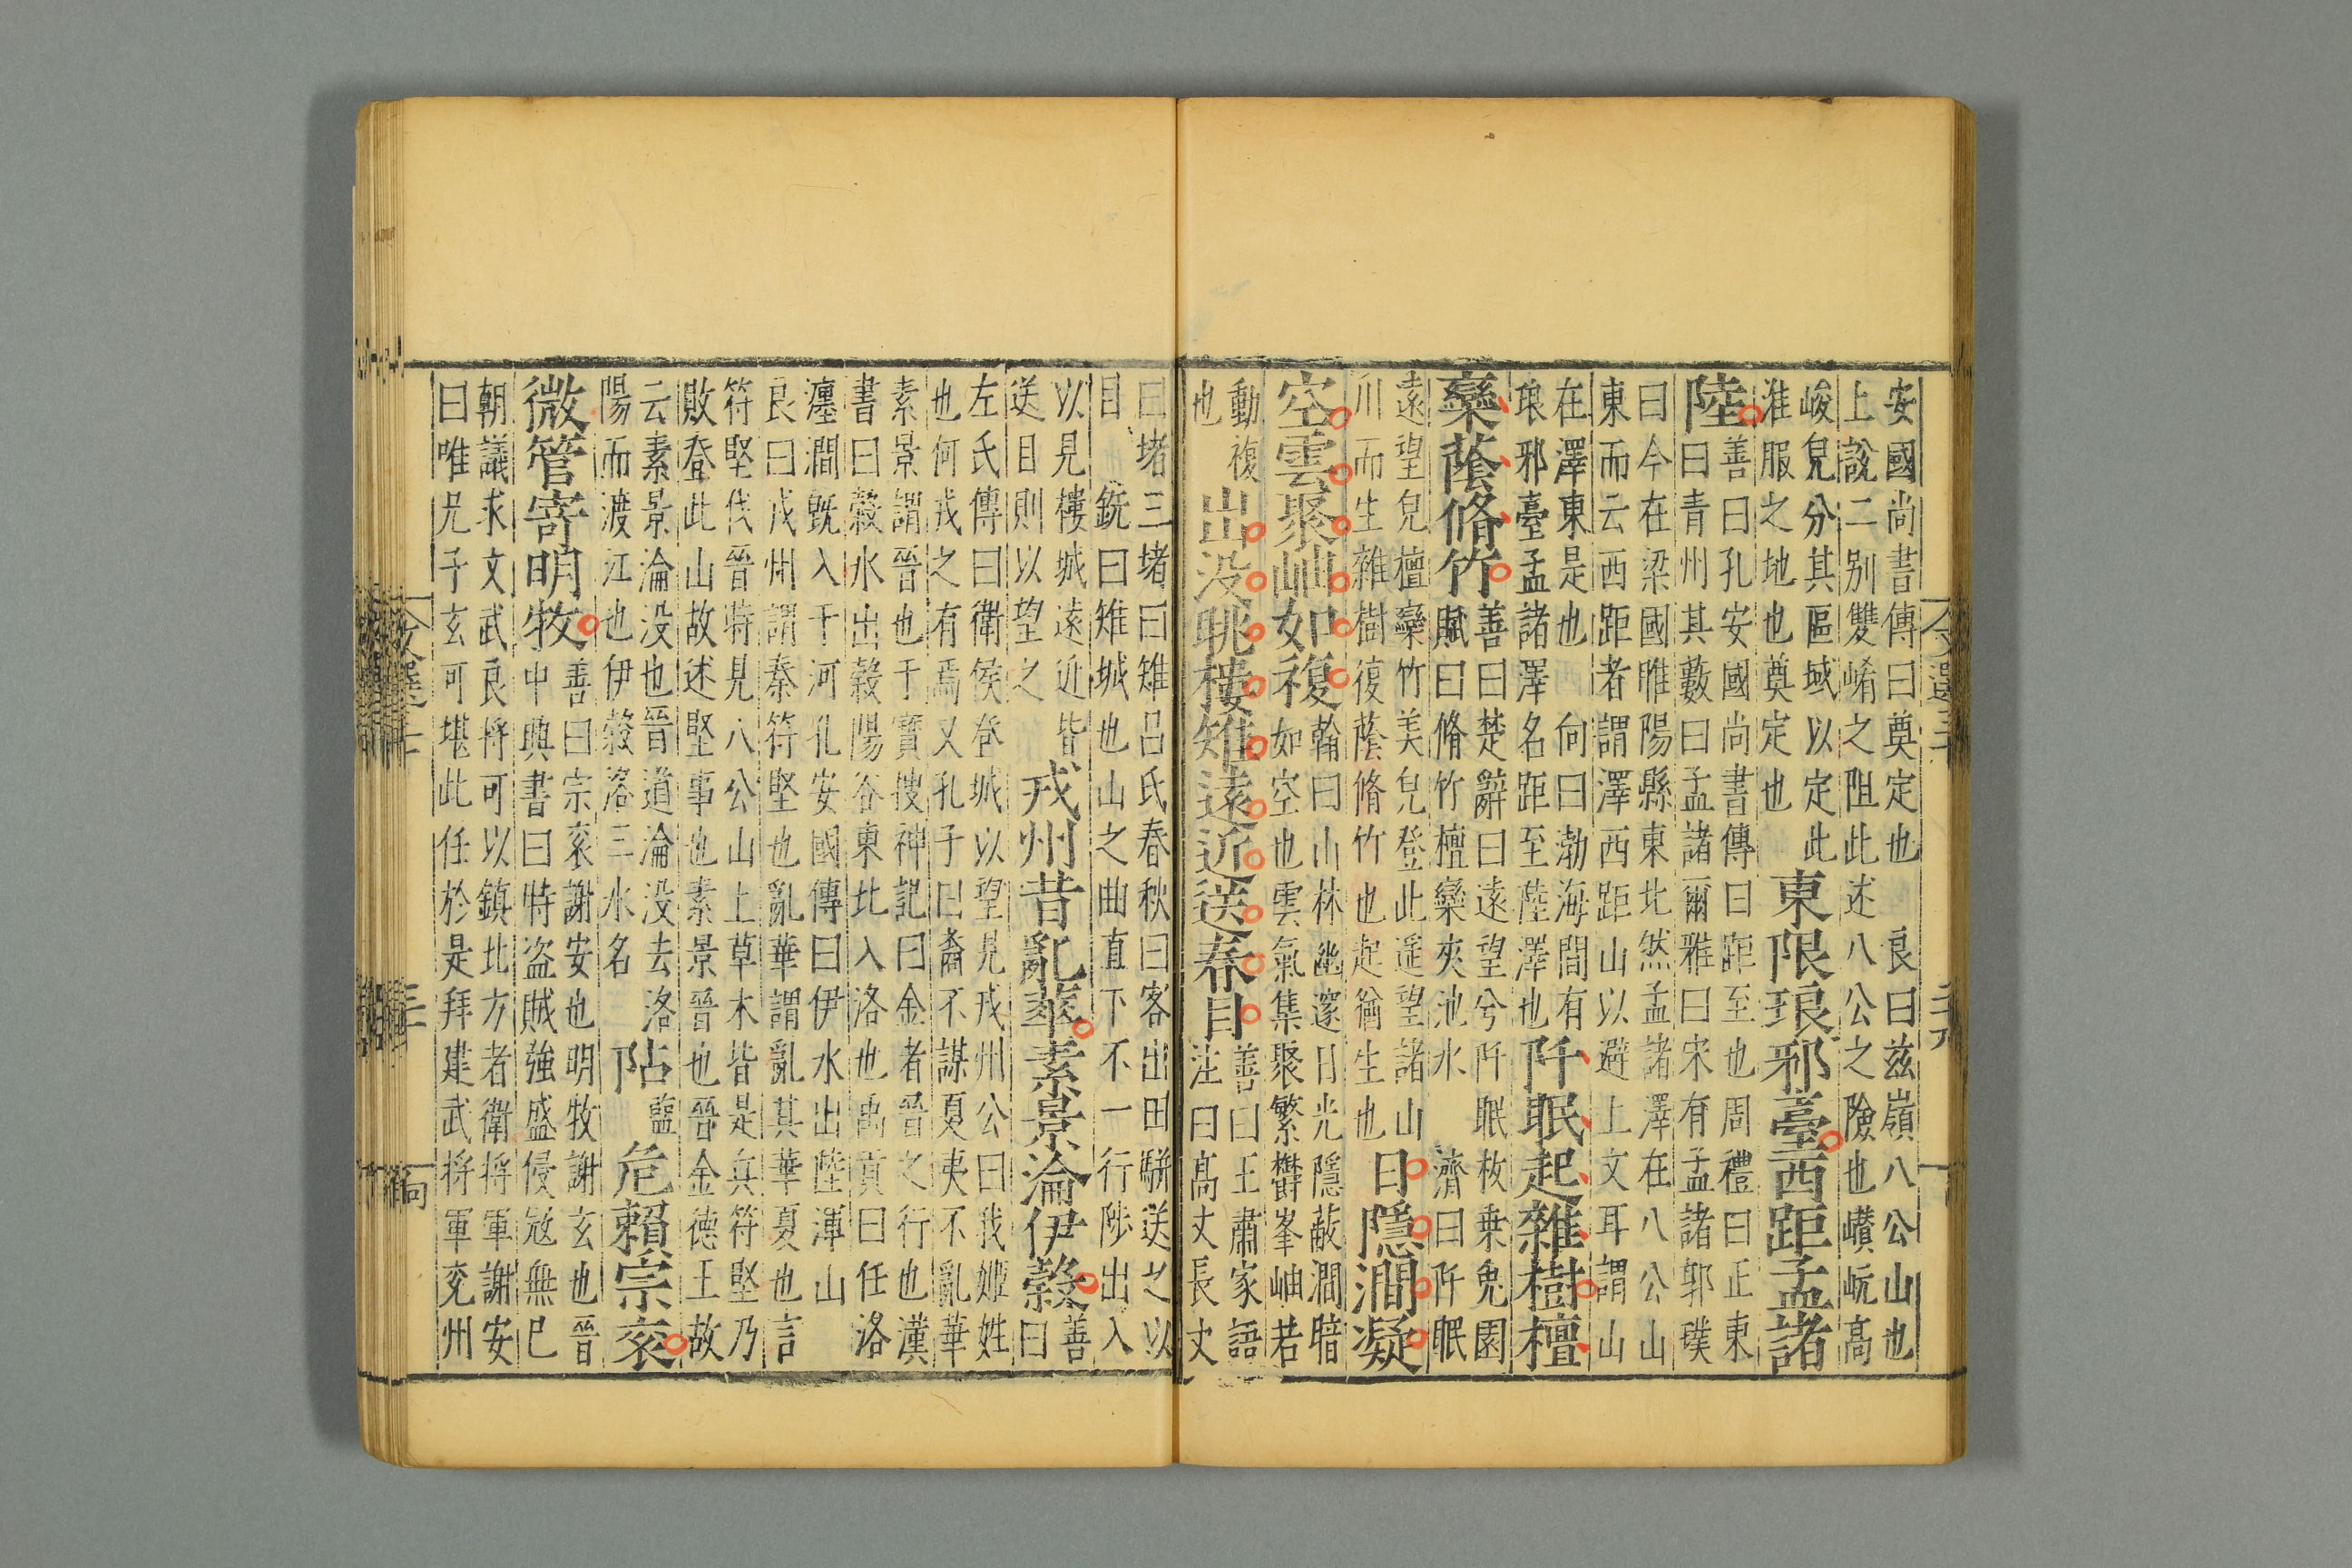 安國尚書傳曰奠定也　良曰兹嶺八公山也
上說二别雙崤之阻此述八公之險也巑岏高
峻皃分其區域以定此
淮服之地也奠定也
東限琅邪臺西距孟諸
陸
善曰孔安國尚書傳曰距至也周禮曰正東
曰青州其藪曰孟諸爾雅曰宋有孟諸郭璞
曰今在梁國睢陽縣東北然孟諸澤在八公山
東而云西距者謂澤西距山以避上文耳謂山
在澤東是也　向曰渤海間有
琅邪臺孟諸澤名距至陸澤也
阡眠起雜樹檀
欒蔭脩竹
善曰楚辭曰遠望兮阡眠枚乗兔園
賦曰脩竹檀欒夾池水　濟曰阡眠
遠望皃檀欒竹美皃登此遥望諸山
川而生雜樹復蔭脩竹也起猶生也
日隱澗凝
空雲聚岫如複
翰曰山林幽邃日光隱蔽澗暗
如空也雲氣集聚繁欝峯岫若
動複
也
出没眺樓雉遠近送春目
善曰王肅家語
注曰高丈長丈
曰堵三堵曰雉吕氏春秋曰客出田駢送之以
目　銑曰雉城也山之曲直下不一行陟出入
以見樓城遠近皆
送目則以望之
戎州昔亂華素景淪伊榖
善
曰
左氏傳曰衛侯登城以望見戎州公曰我姬姓
也何戎之有焉又孔子曰裔不謀夏夷不亂華
素景謂晉也干寳搜神記曰金者晉之行也漢
書曰榖水出榖陽谷東北入洛也禹貢曰任洛
瀍澗既入于河孔安國傳曰伊水出陸渾山
良曰戎州謂秦符堅也亂華謂亂其華夏也言
符堅伐晉特見八公山上草木皆是兵符堅乃
敗登此山故述堅事也素景晉也晉金德王故
云素景淪没也晉道淪没去洛
陽而渡江也伊榖洛三水名
阽
䀋
危賴宗衮
微管寄明牧
善曰宗衮謝安也明牧謝玄也晉
中興書曰特盗賊強盛侵寇無已
朝議求文武良將可以鎮北方者衛將軍謝安
曰唯兄子玄可堪此任於是拜建武將軍兖州